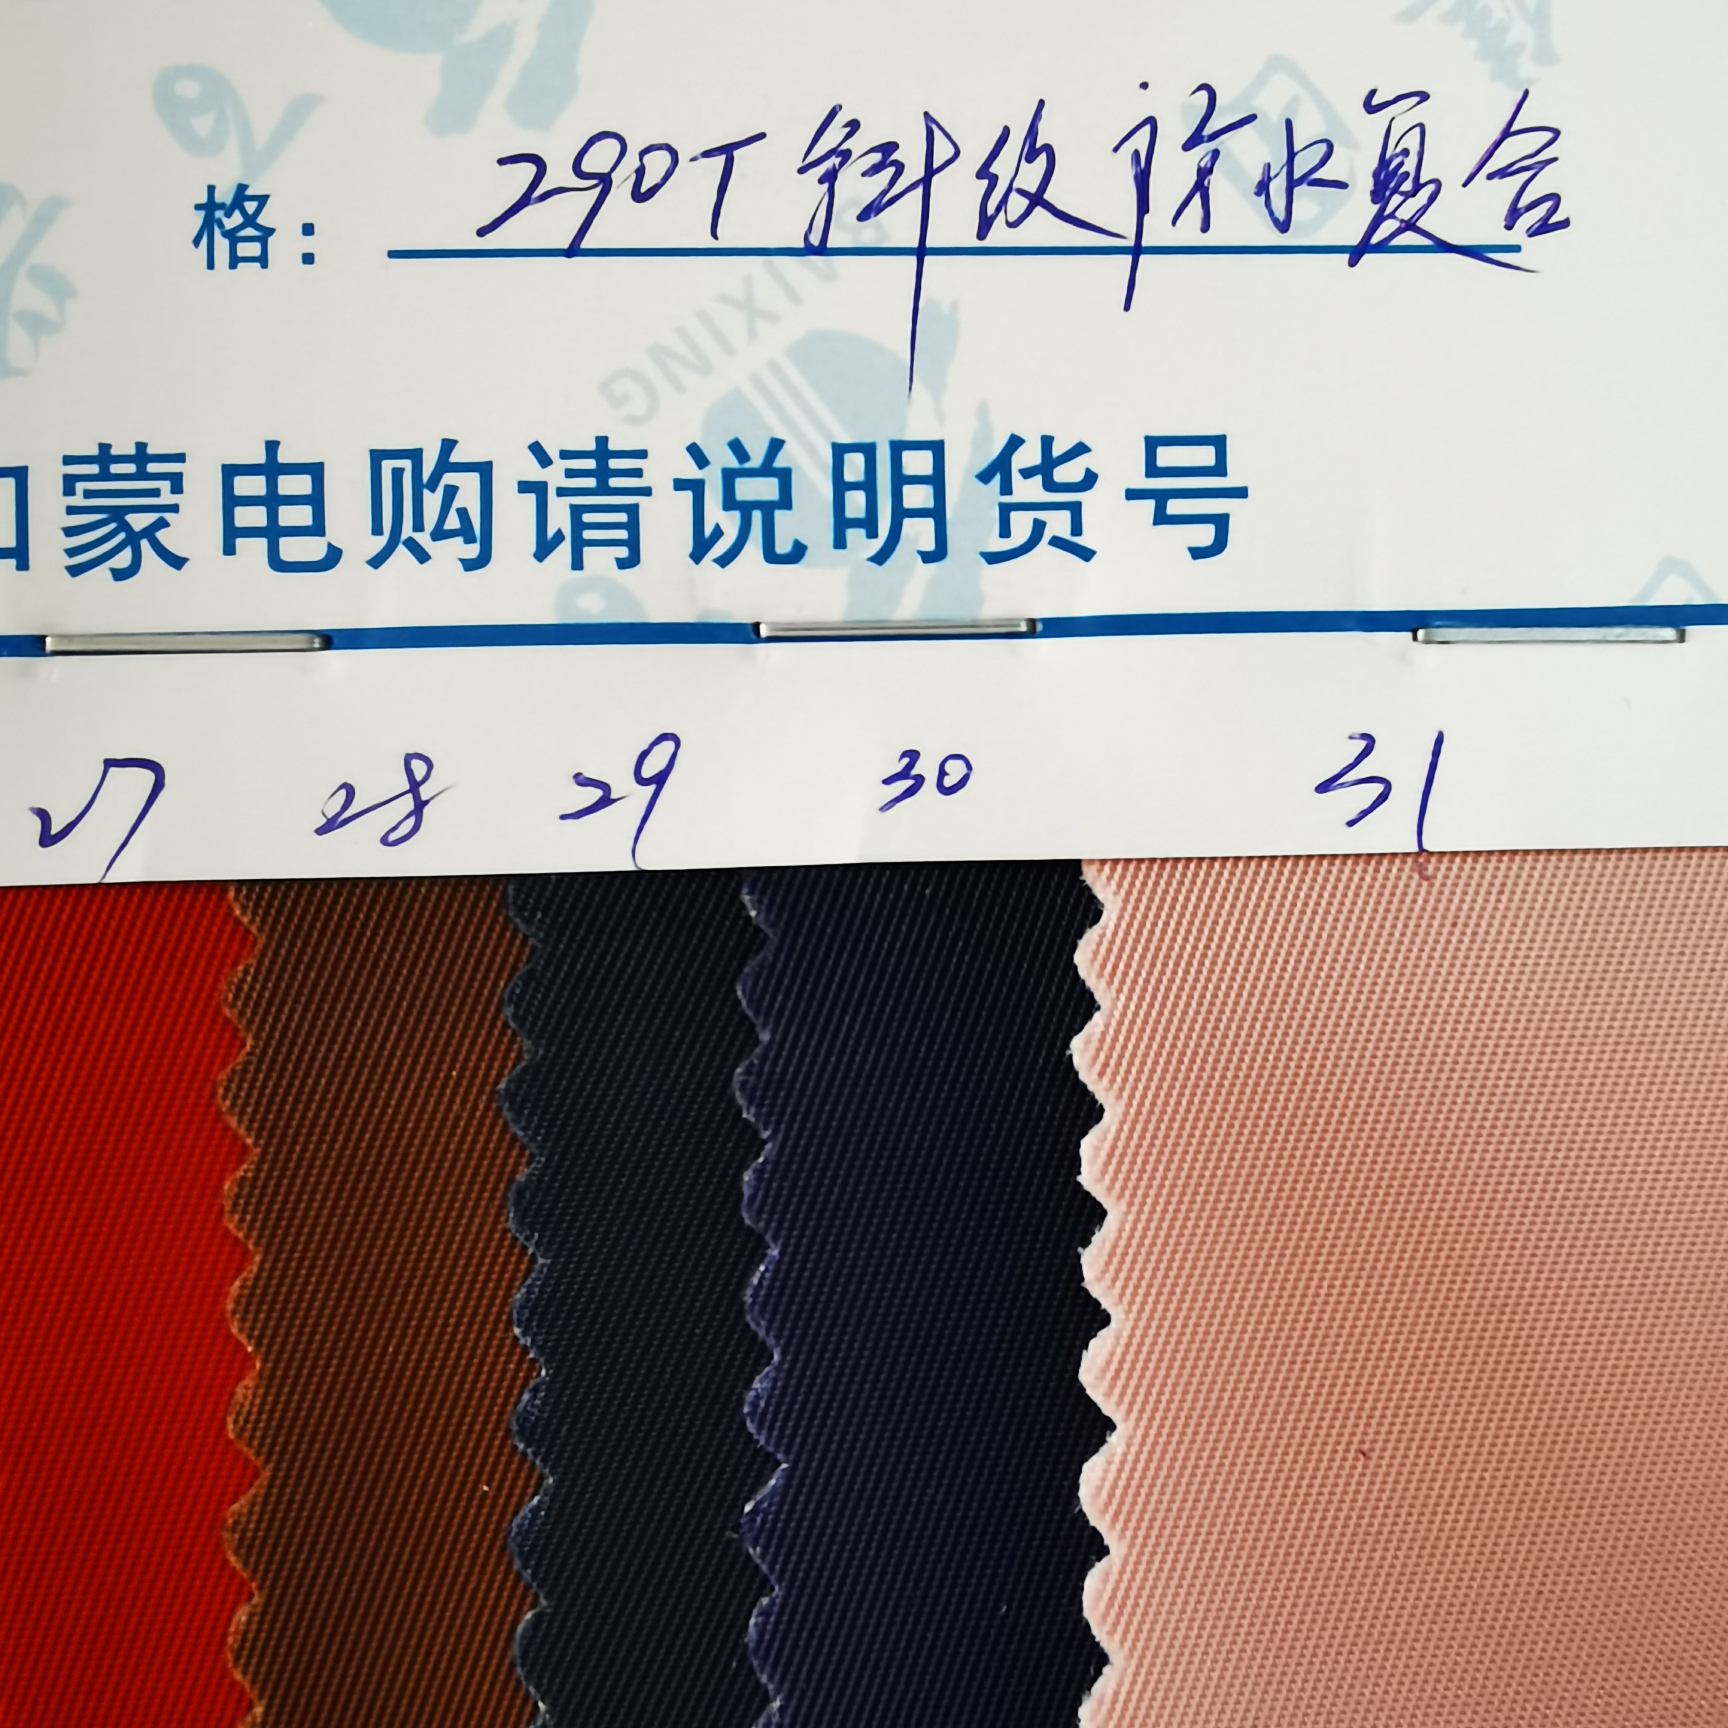 格: 290T斜纹防水复合
WIXING
如蒙电购请说明货号
27 28 29 30 31